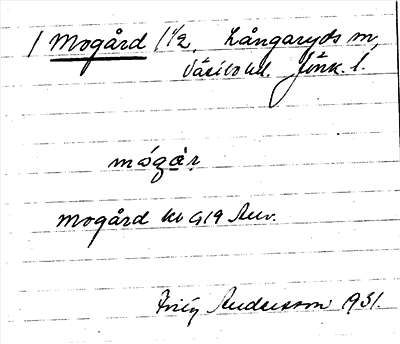 / Mogård 1 1/2, Långaryds sn,
Västbo hd. Jönk. l.
mógår
Mogård kv G19 Auv.
Andersson 1931.